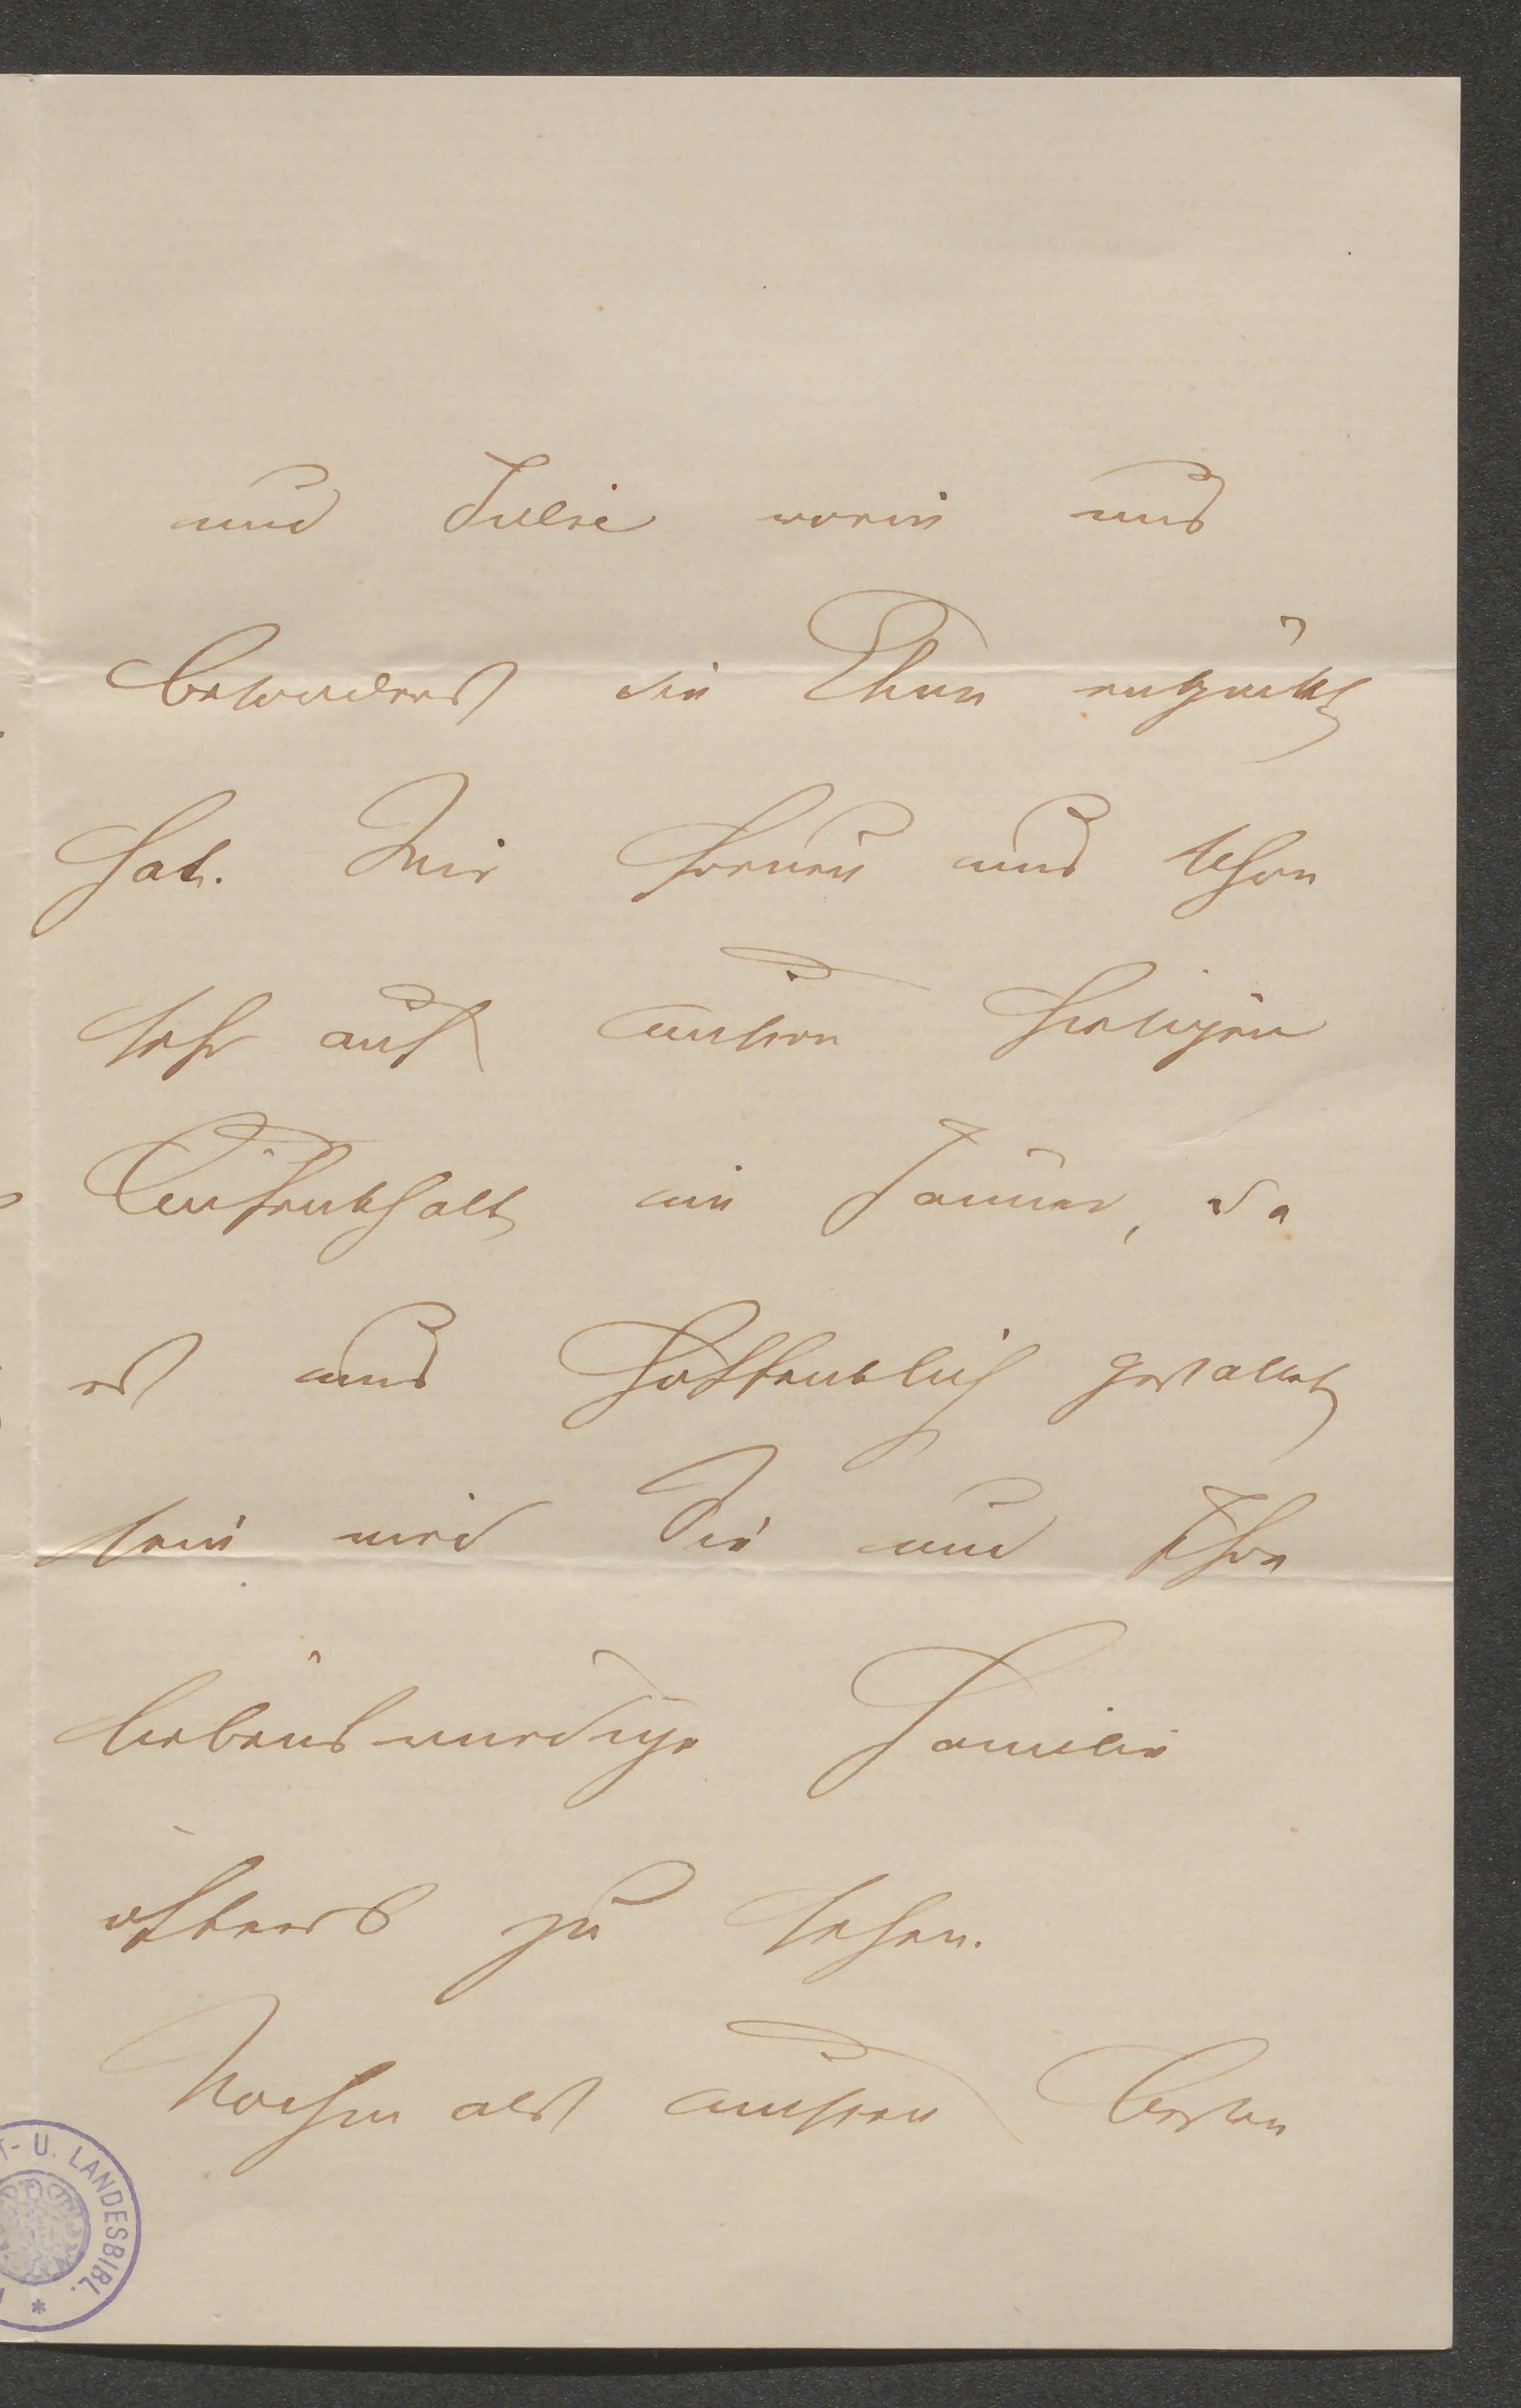 und Julie worin uns
besonders die Thun entzückt
hat. Wir freuen uns schon
sehr auf unsren hiesigen
Aufenthalt im Jänner, da
es uns hoffentlich gestattet
sein wird Sie und Ihre
liebenswürdige Familie
öfters zu sehen.
Nochmals unsren besten
T- U. LANDESBIBL.
*